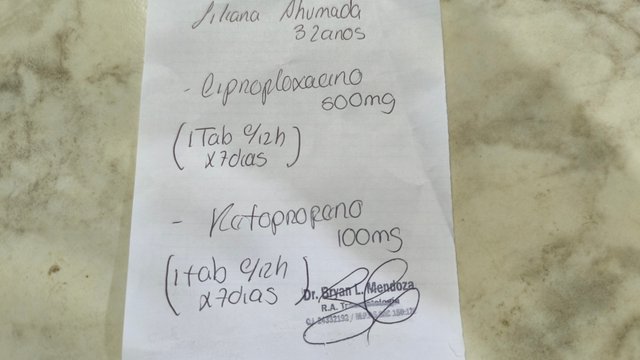 Liliana Ahumada
32anos
- Ciproploxacino
500mg
(1Tab c/12h
x7dias)
- Ketopropeno
100mg
(1tab c/12h
x7dias)
Dr. Bryan L. Mendoza
R.A.